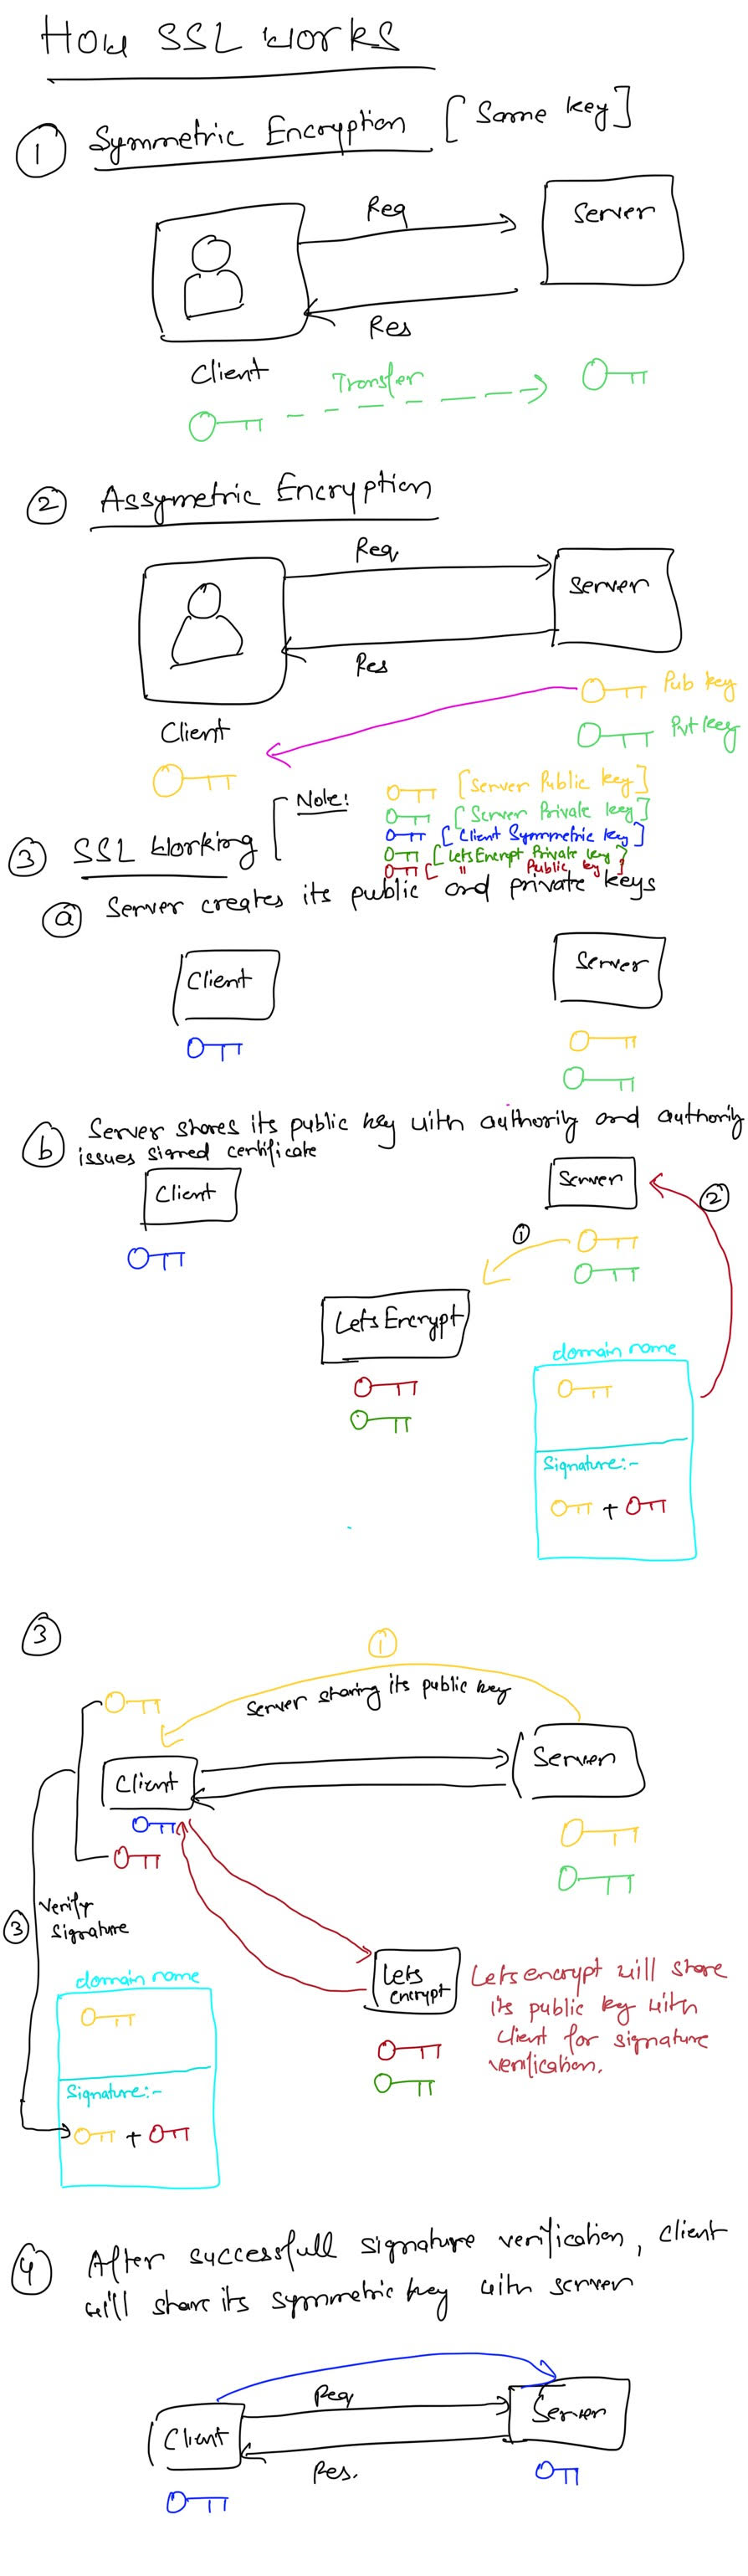 How SSL Works
① Symmetric Encryption [Same key]
Req
Server
Res
Client
Transfer
② Assymetric Encryption
Req
Server
Res
Pub key
Client
Pvt key
Note:
[Server Public key]
[Server Private key]
③ SSL Working
[Client Symmmetric key]
[LetsEncrypt Private key]
[ " Public key]
ⓐ Server creates its public and private keys
Client
Server
ⓑ Server shares its public key with authority and authority
issues signed certificate
Client
Server
②
①
LetsEncrypt
domain name
Signature:-
+
③
①
Server sharing its public key
Client
Server
③ Verify
Signature
domain name
Lets
encrypt
Letsencrypt will share
its public key with
client for signature
verification.
Signature:-
+
④ After successfull signature verification, client
will share its symmetric key with server
Req
Client
Server
Res.